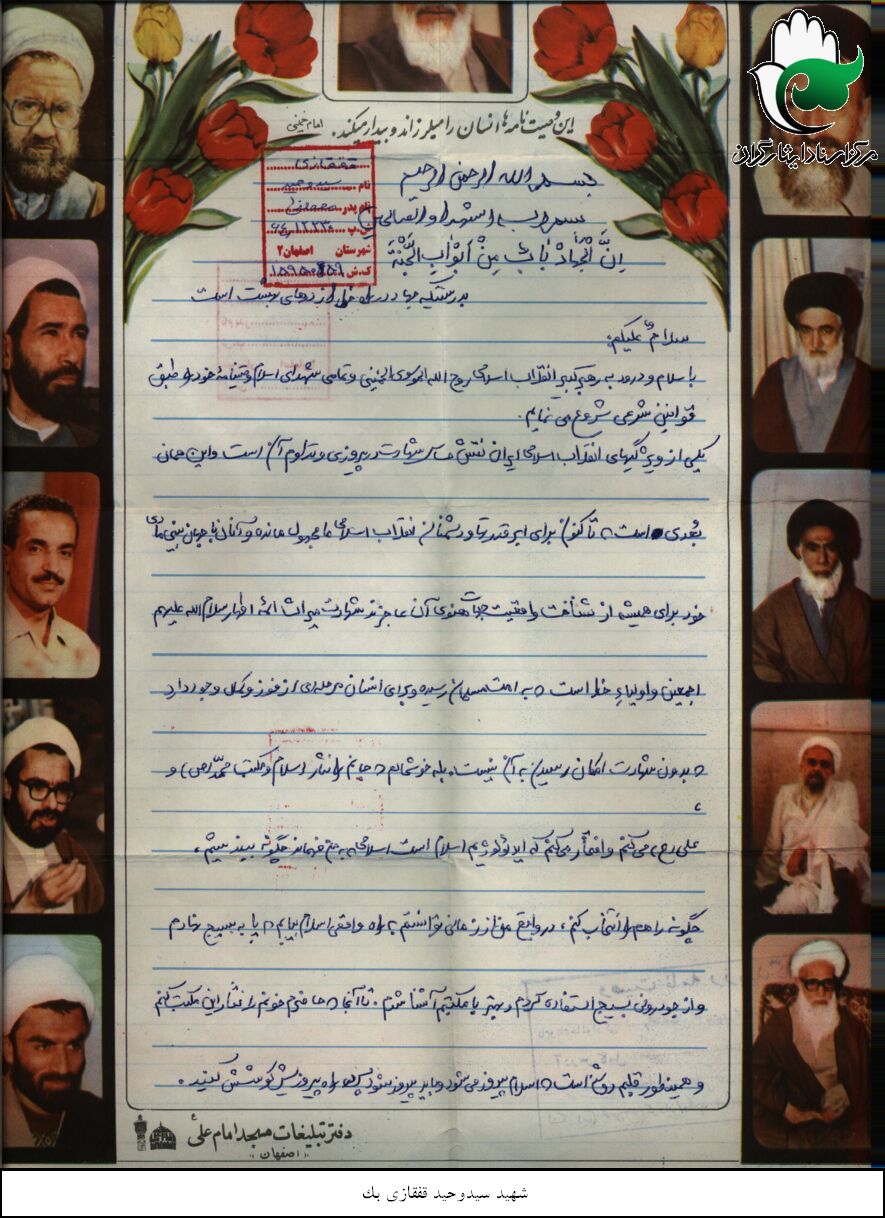 مرکز اسناد ایثارگران
این وصیت نامه ها انسان را میلرزاند و بیدار میکند. امام خمینی
بسم الله الرحمن الرحیم
بسم رب الشهداء والصدیقین
اِنَّ الْجِهادَ بابٌ مِنْ اَبْوابِ الْجَنَّة
بدرستیکه جهاد در راه خدا از درهای بهشت است
قفقازی
نام سیدوحید
نام پدر
ش.پ
شهرستان اصفهان ۲
ک.ش
سلام علیکم:
با سلام و درود به رهبر کبیر انقلاب اسلامی روح الله الموسوی الخمینی و تمامی شهدای اسلام وصیتنامه خود را طبق
قوانین شرعی شروع می نمایم.
یکی از ویژگیهای انقلاب اسلامی ایران نقش شهادت در پیروزی و تداوم آن است و این همان
بُعدی است که تاکنون برای ابرقدرتها و دشمنان انقلاب اسلامی ما مجهول مانده و آنان با جهان بینی مادی
خود برای همیشه از شناخت واقعیت جهات معنوی آن عاجزند شهادت میراث ائمه اطهار سلام الله علیهم
اجمعین و اولیاء خدا است که به امت مسلمان رسیده و برای انسان مرحله ای از فوز و کمال وجود دارد
که بدون شهادت امکان رسیدن به آن نیست. بله خوشحالم که جانم را نثار اسلام و مکتب محمد (ص) و
علی (ع) می کنم و افتخار می کنم که ایدئولوژیم اسلام است اسلامی که به من فهماند چگونه بیندیشم،
چگونه راهم را انتخاب کنم، در واقع من از زمانی توانستم به راه واقعی اسلام بیایم که پا به بسیج نهادم
و از جو درونی بسیج استفاده کردم و بهتر با مکتبم آشنا شدم. تا آنجا که حاضرم خونم را نثار این مکتب کنم
و همینطور قلبم روشن است که اسلام پیروز می شود و باید پیروز شود پس در راه پیروزیش کوشش کنید.
دفتر تبلیغات مسجد امام علی ع
«اصفهان»
شهید سیدوحید قفقازی بك